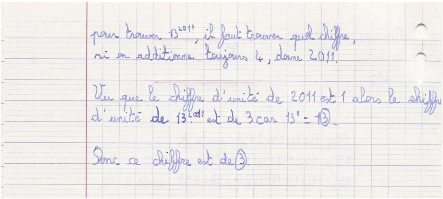 pour trouver 13²⁰¹¹, il faut trouver quel chiffre,
si on additionne toujours 4, donne 2011.
Vu que le chiffre d'unité de 2011 est 1 alors le chiffre
d'unité de 13²⁰¹¹ est de 3 car 13¹ = 13.
Donc ce chiffre est de 3